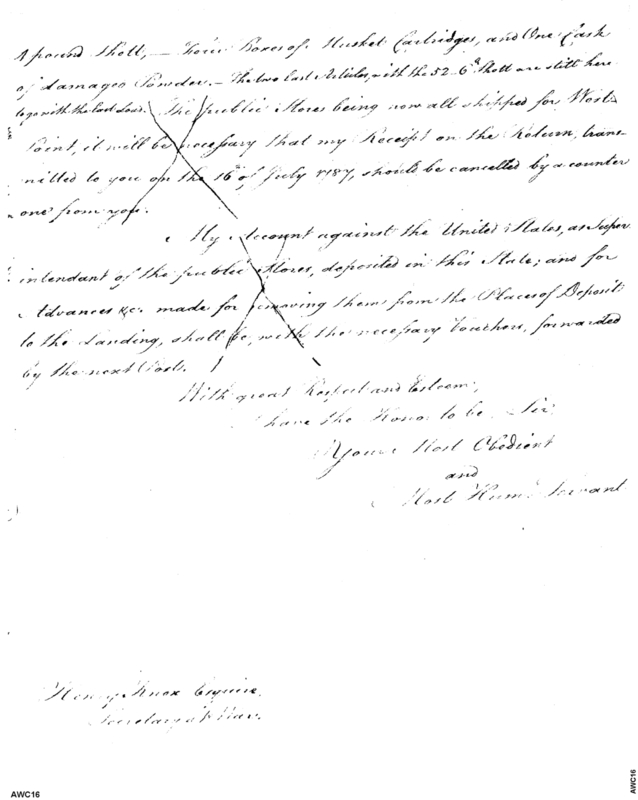 4 pound Shott, — Four Boxes of Musket Cartridges, and One Cask
of damaged Powder. — The two last Articles, with the 52 - 6 lb Shott are still here
to go with the last Load. The public Stores being now all shipped for West
Point, it will be necessary that my Receipt on the Return, trans-
mitted to you on the 16th of July 1787, should be cancelled by a counter
one from you.
My Account against the United States, as Super
intendant of the public Stores, deposited in this State; and for
Advances &c. made for removing them from the Places of Deposit
to the Landing, shall be, with the necessary Vouchers, forwarded
by the next Post.
With great Respect and Esteem,
I have the Honor to be Sir
Your Most Obedient
and
Most Hume Servant
Henry Knox Esquire
Secretary at War.
AWC16
AWC16